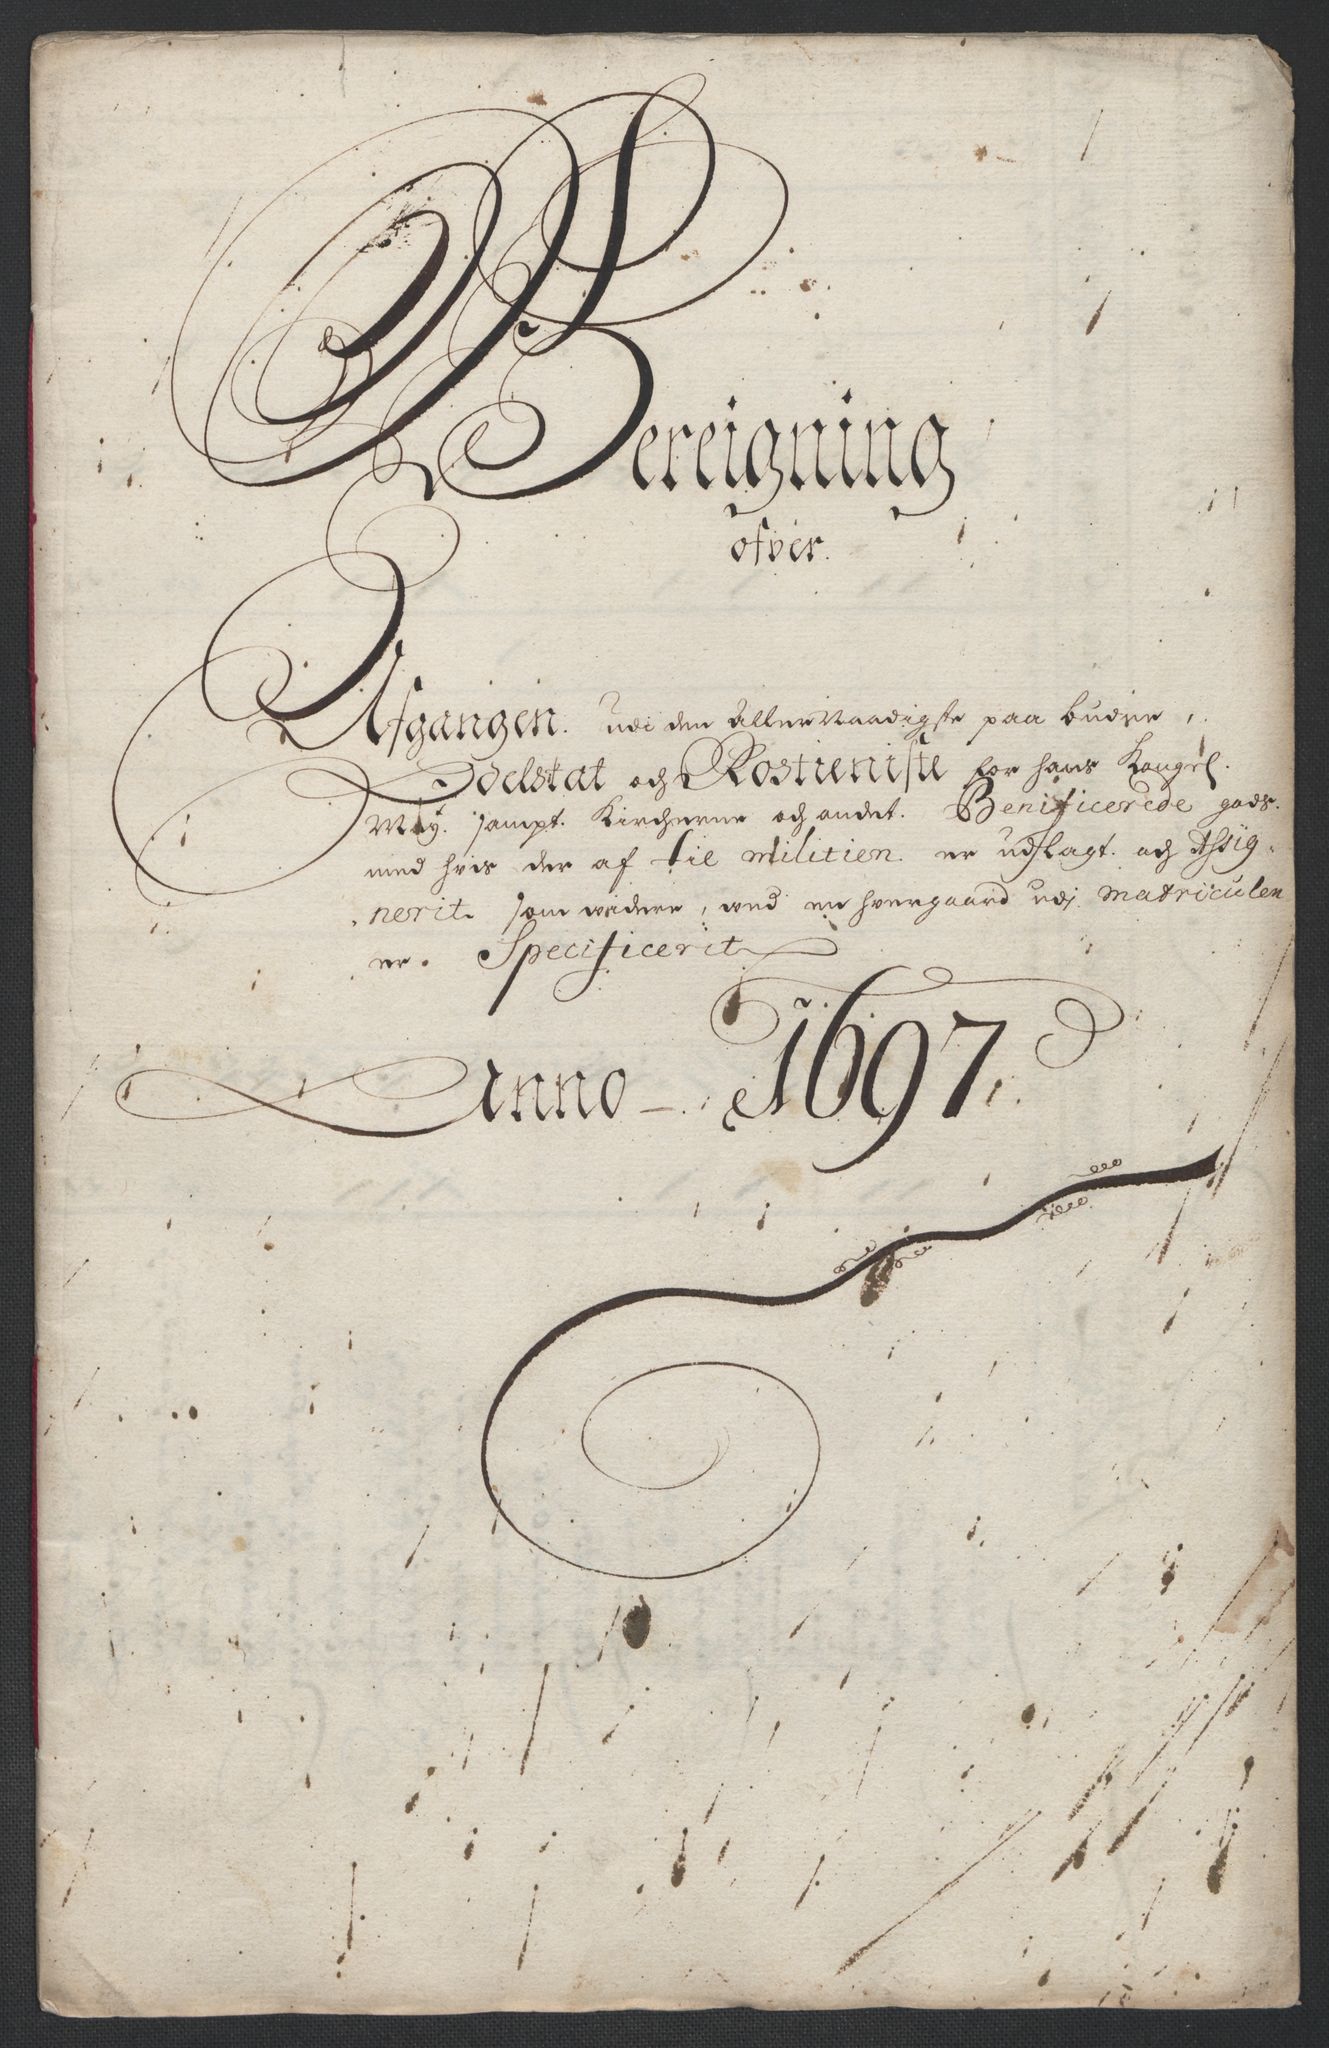 Bereigning
ofver.
Afgangen. udi den Allernaadigste paa budne,
Odelskat och Rostieniste for hans Kongel.
May. sampt. Kircherne och andet. Benificerede gods.
med hvis der af til militien er udlagt. och Assig-
nerit som videre, ved en hver gaard udj Matriculen
er. Specificerit
Anno 1697